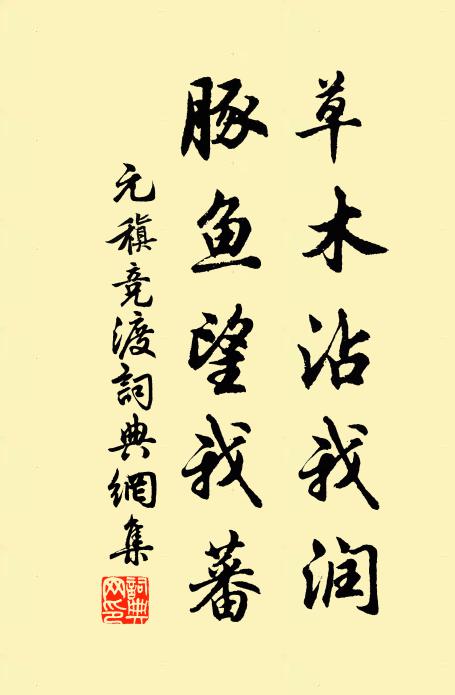 草木沾我润
豚鱼望我蕃
元稹竞渡詞典網集
詞典
网印